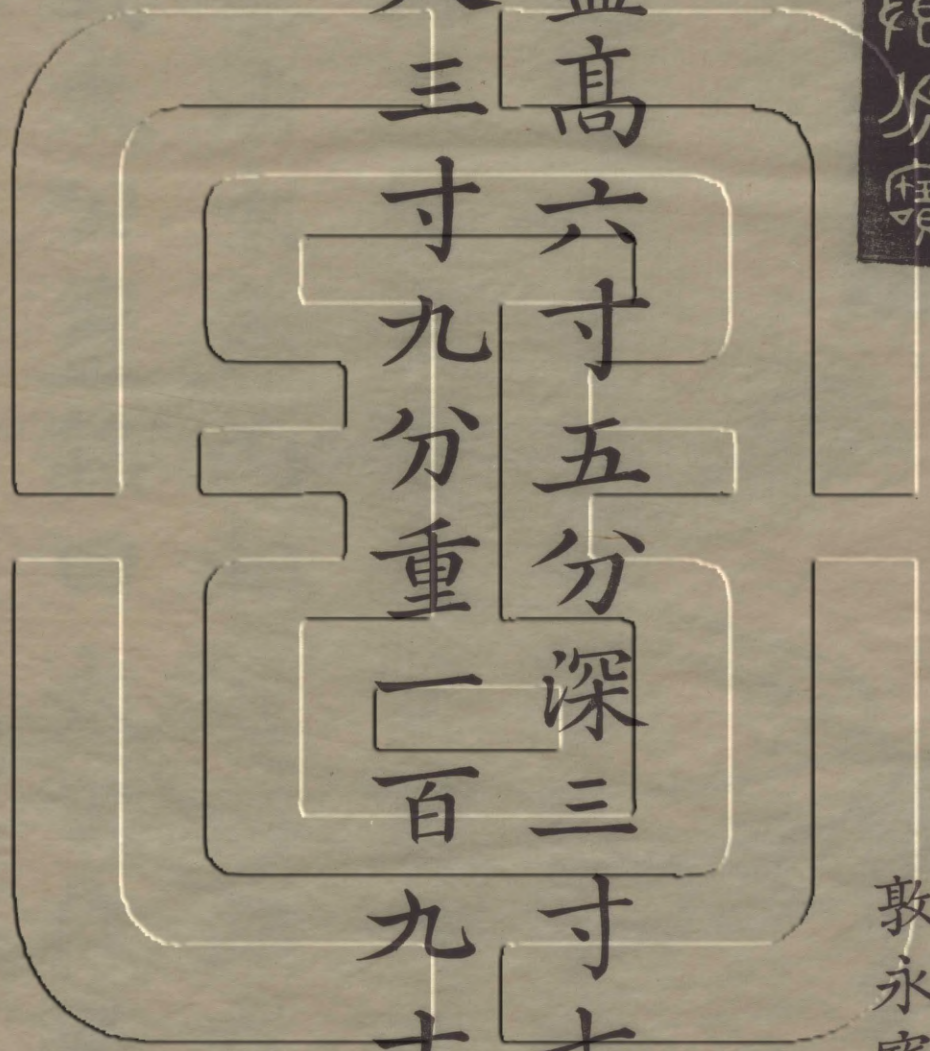 敦永
髙六寸五分深三寸
三寸九分重一百九